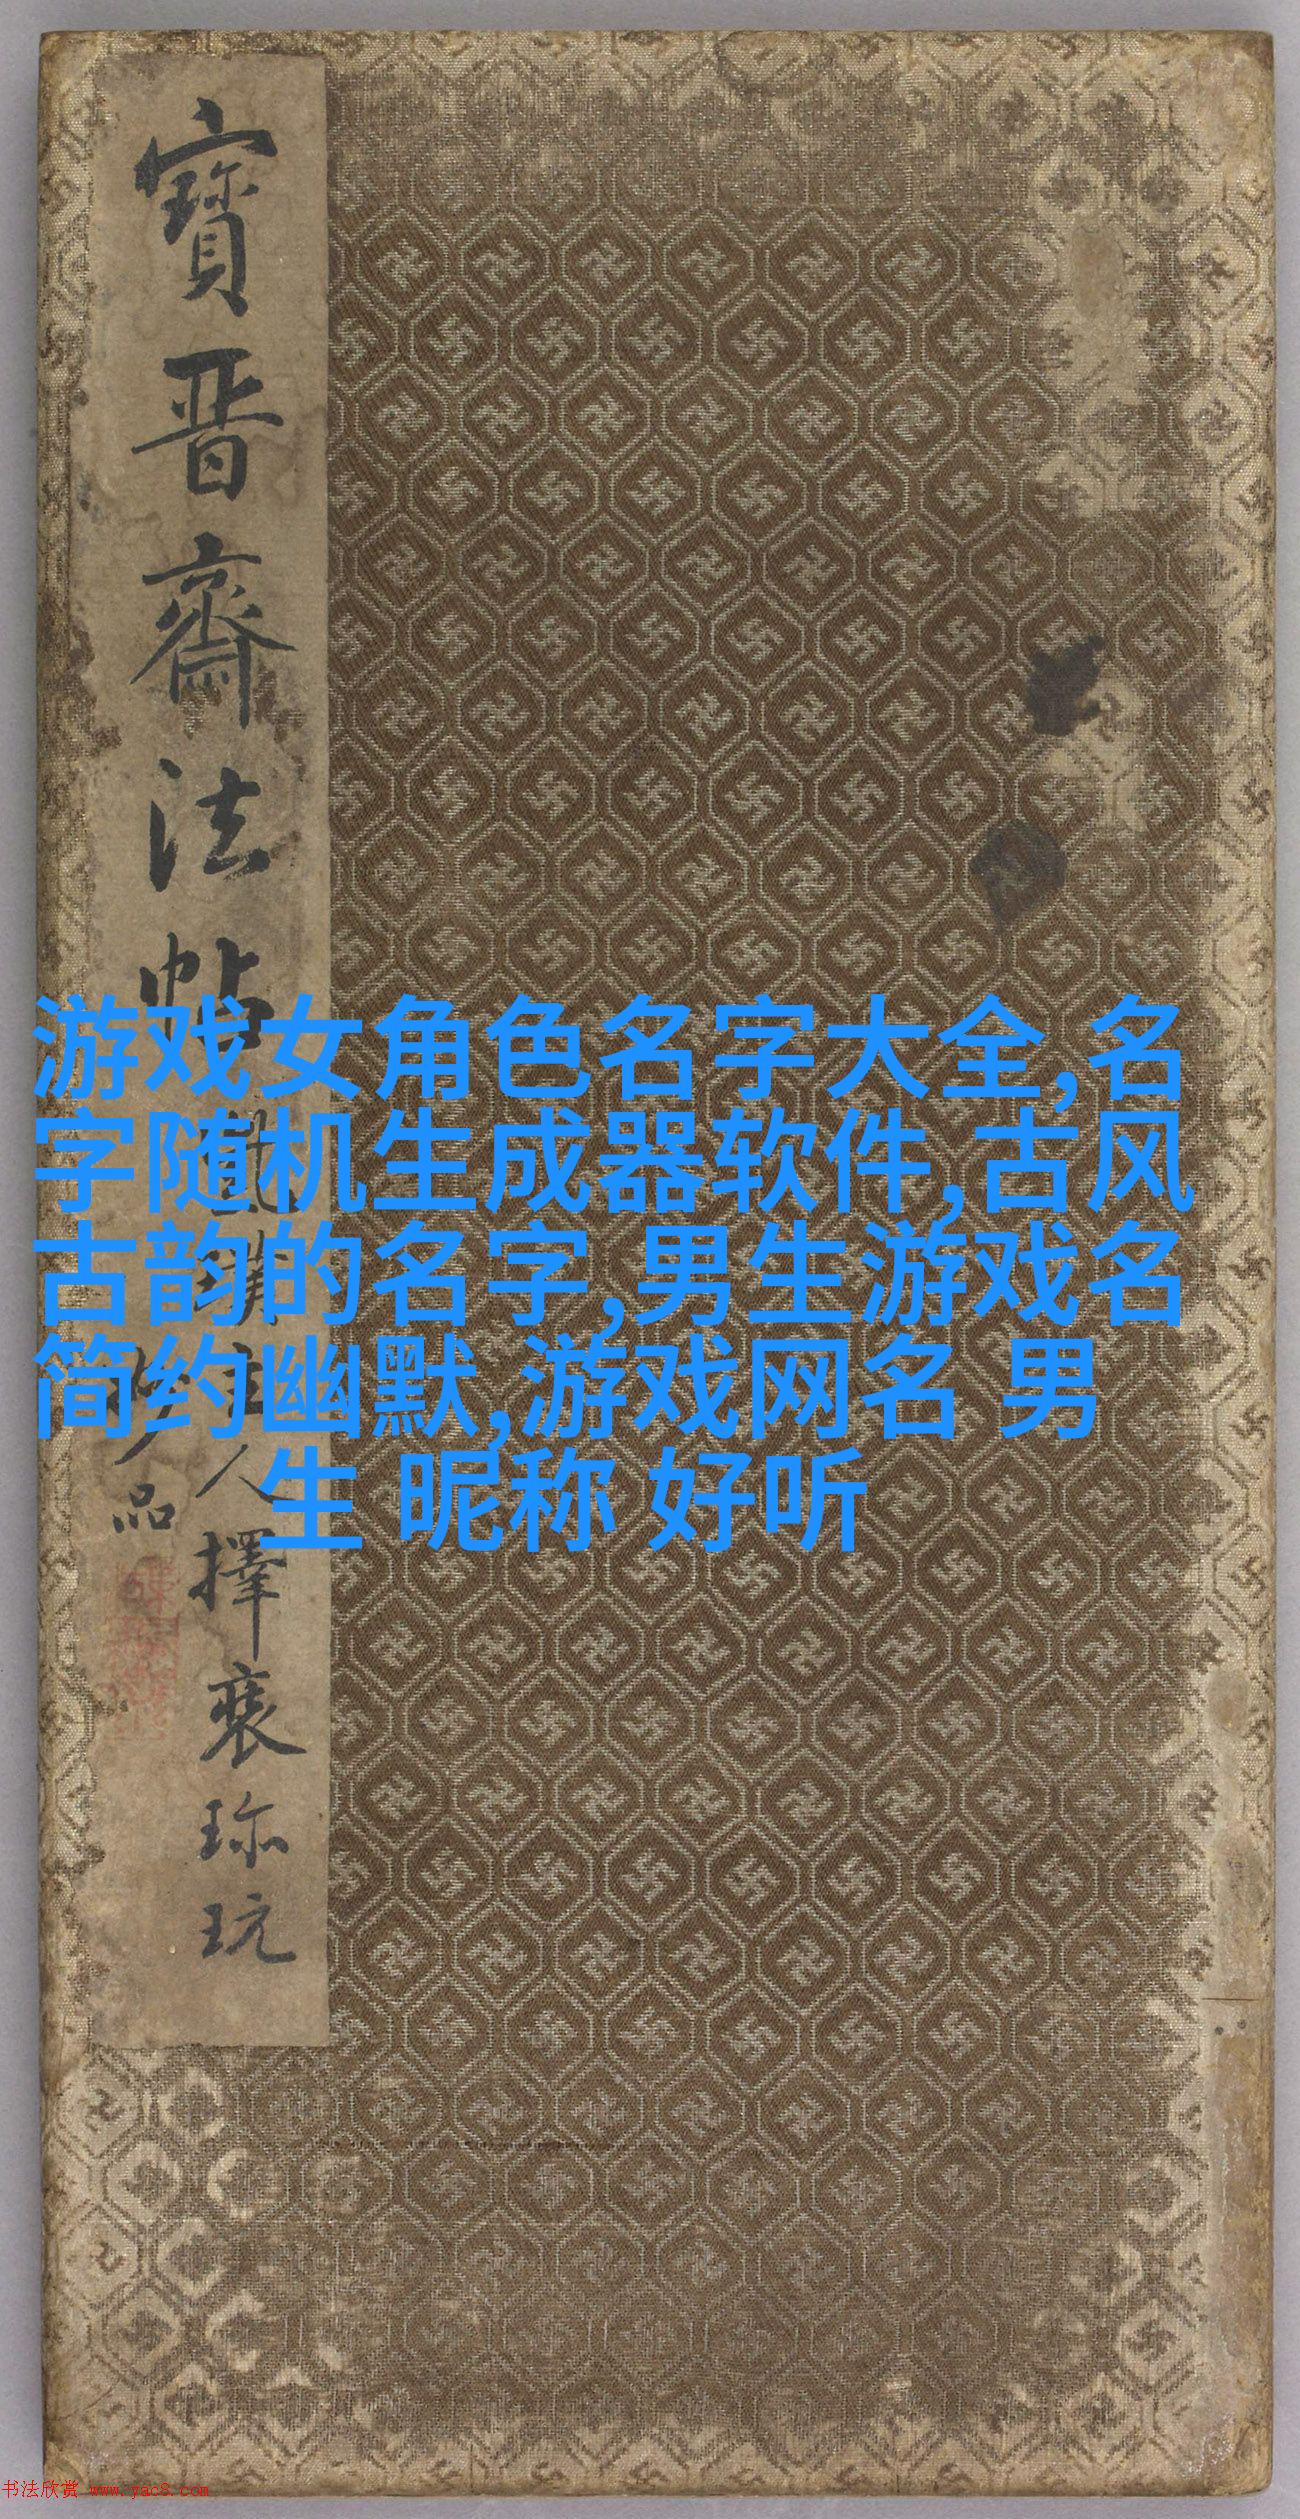 寶晋齋法帖
人擇裘珎玩
品
游戏女角色名字大全,名
字随机生成器软件,古风
古韵的名字,男生游戏名
简约幽默,游戏网名 男
生 昵称 好听
书法欣赏 www.yac8.com